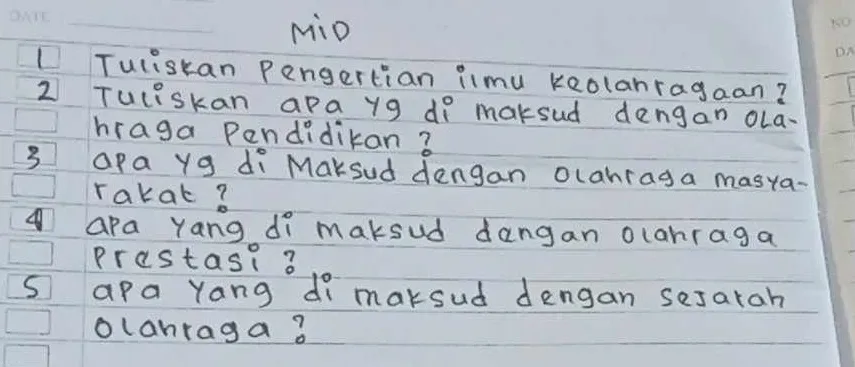 DATE
MID
NO
DA
1 Tuliskan Pengertian ilmu keolahragaan?
2 Tuliskan apa yg di maksud dengan ola-
hraga Pendidikan?
3 apa yg di Maksud dengan olahraga masya-
rakat?
4 apa yang di maksud dengan olahraga
Prestasi?
5 apa yang di maksud dengan sejarah
olahraga?